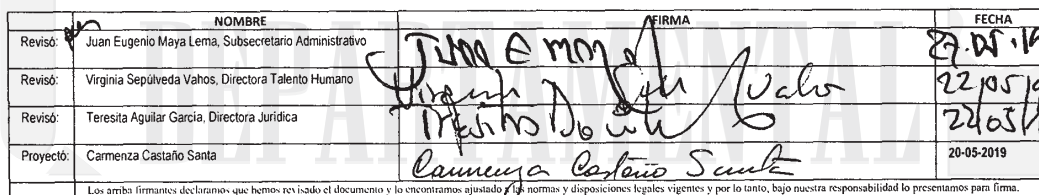 NOMBRE FIRMA FECHA
Revisó: Juan Eugenio Maya Lema, Subsecretario Administrativo Juan E Maya 27.05.19
Revisó: Virginia Sepúlveda Vahos, Directora Talento Humano Virginia Vahos 22/05/19
Revisó: Teresita Aguilar García, Directora Jurídica 22/05/
Proyectó: Carmenza Castaño Santa Carmenza Castaño Santa 20-05-2019
Los arriba firmantes declaramos que hemos revisado el documento y lo encontramos ajustado a las normas y disposiciones legales vigentes y por lo tanto, bajo nuestra responsabilidad lo presentamos para firma.
DEPARTAMENTAL